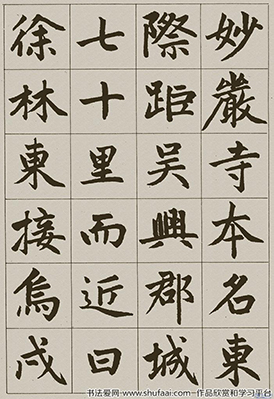 妙嚴寺本名東
際距吳興郡城
七十里而近曰
徐林東接烏戍
书法爱网·www.shufaai.com--作品欣赏和学习平台